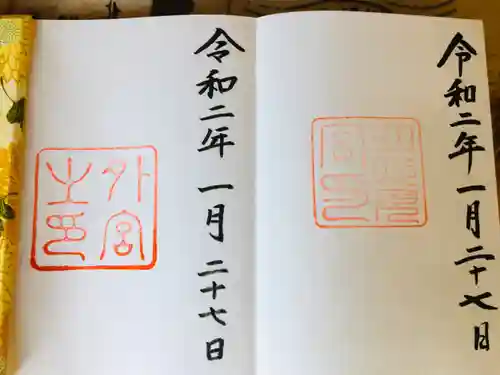 令和二年一月二十七日
令和二年一月二十七日
外宮
之印